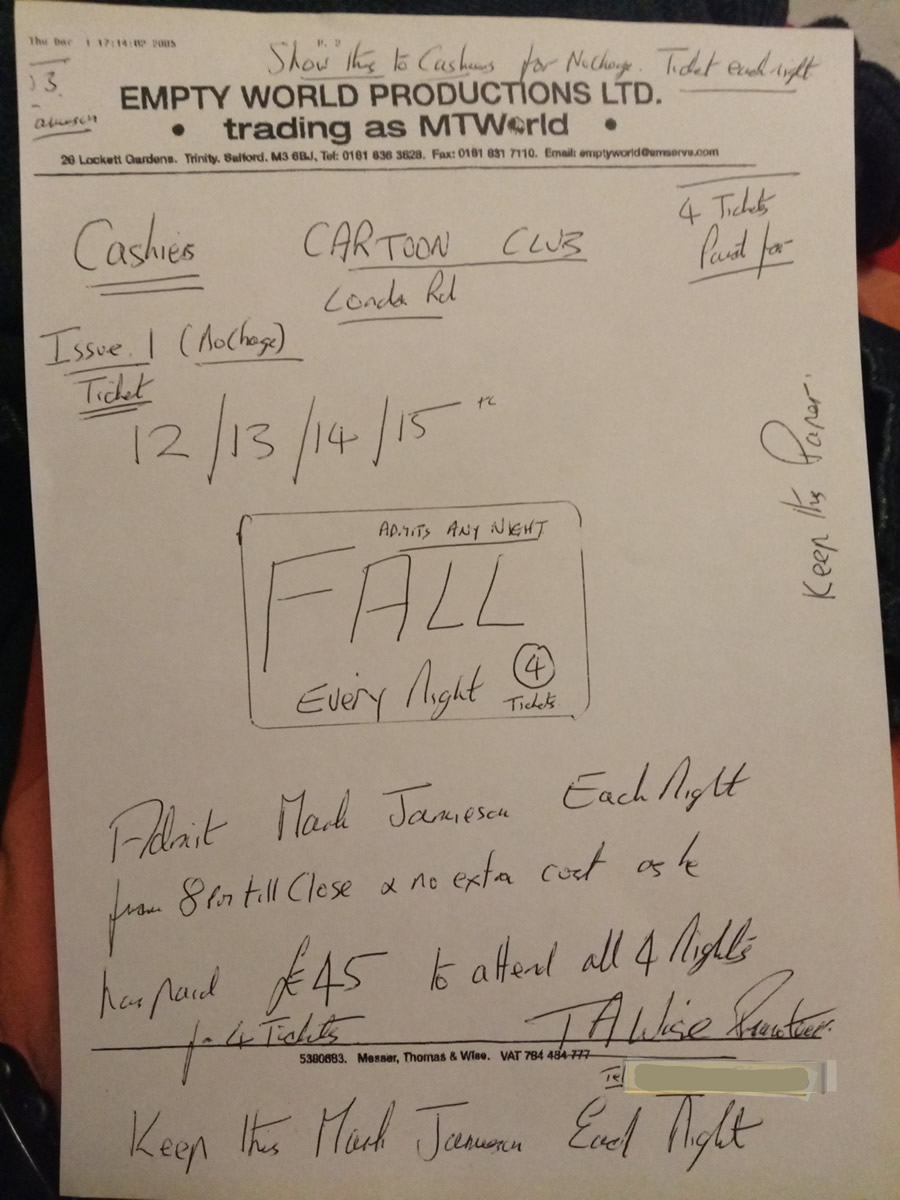 Thu Dec 1 17:14:02 2005 P. 2
Show this to Cashiers for NoCharge. Ticket each night
EMPTY WORLD PRODUCTIONS LTD.
• trading as MTWorld •
26 Lockett Gardens. Trinity. Salford. M3 6BJ, Tel: 0161 636 3628. Fax: 0161 831 7110. Email: emptyworld@emserve.com
4 Tickets
Paid for
Cashiers CARTOON CLUB
London Rd
Issue. 1 (NoCharge)
Ticket
12/13/14/15
Keep this Paper.
ADMITS ANY NIGHT
FALL
Every Night 4
Tickets
Admit Mark Jamieson Each Night
from 8pm till Close @ no extra cost as he
has paid £45 to attend all 4 Nights
for 4 Tickets TA Wise Promoter.
5380683. Messer, Thomas & Wise. VAT 784 484 777
Tel
Keep this Mark Jamieson Each Night